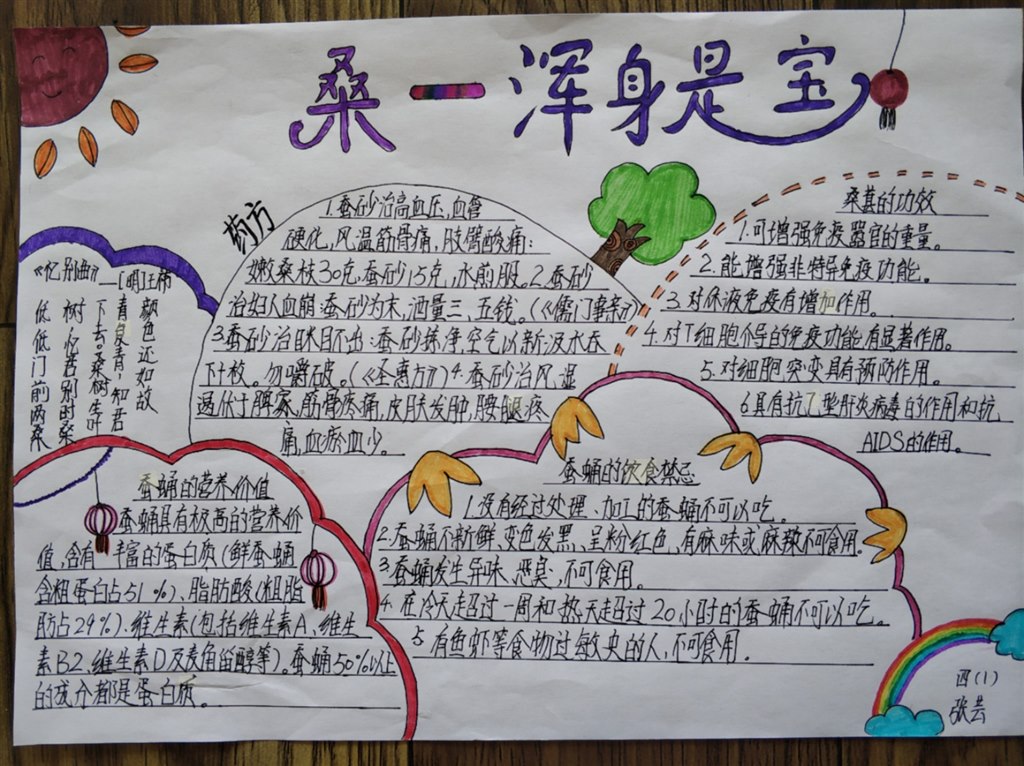 桑一浑身是宝
药方
1.蚕砂治高血压,血管
硬化,风温筋骨痛,肢臂酸痛:
嫩桑枝30克,蚕砂15克,水煎服。2.蚕砂
治妇人血崩:蚕砂为末,酒量三、五钱。(《儒门事亲》)
3.蚕砂治眯目不出:蚕砂拣净,空气以新汲水吞
下十枚。勿嚼破。(《圣惠方》)4.蚕砂治风湿
遏伏于脾家,筋骨疼痛,皮肤发肿,腰腿疼
痛,血瘀血少。
桑葚的功效
1.可增强免疫器官的重量。
2.能增强非特异免疫功能。
3.对体液免疫有增加作用。
4.对T细胞介导的免疫功能有显著作用。
5.对细胞突变具有预防作用。
6具有抗乙型肝炎病毒的作用和抗
AIDS的作用。
《忆别曲》—[明]王祎
颜色还如故
青复青,知君
下去桑树生叶
树忆昔别时桑
低低门前两桑
蚕蛹的营养价值
蚕蛹具有极高的营养价
值,含有丰富的蛋白质(鲜蚕蛹
含粗蛋白占51%)、脂肪酸(粗脂
肪占29%)、维生素(包括维生素A、维生
素B2、维生素D及麦角甾醇等)。蚕蛹50%以上
的成分都是蛋白质。
蚕蛹的饮食禁忌
1.没有经过处理、加工的蚕蛹不可以吃。
2.蚕蛹不新鲜、变色发黑、呈粉红色,有麻味或麻辣不可食用。
3.蚕蛹发生异味、恶臭,不可食用。
4.在冷天超过一周和热天超过20小时的蚕蛹不可以吃。
5有鱼虾等食物过敏史的人,不可食用。
四(1)
张芸